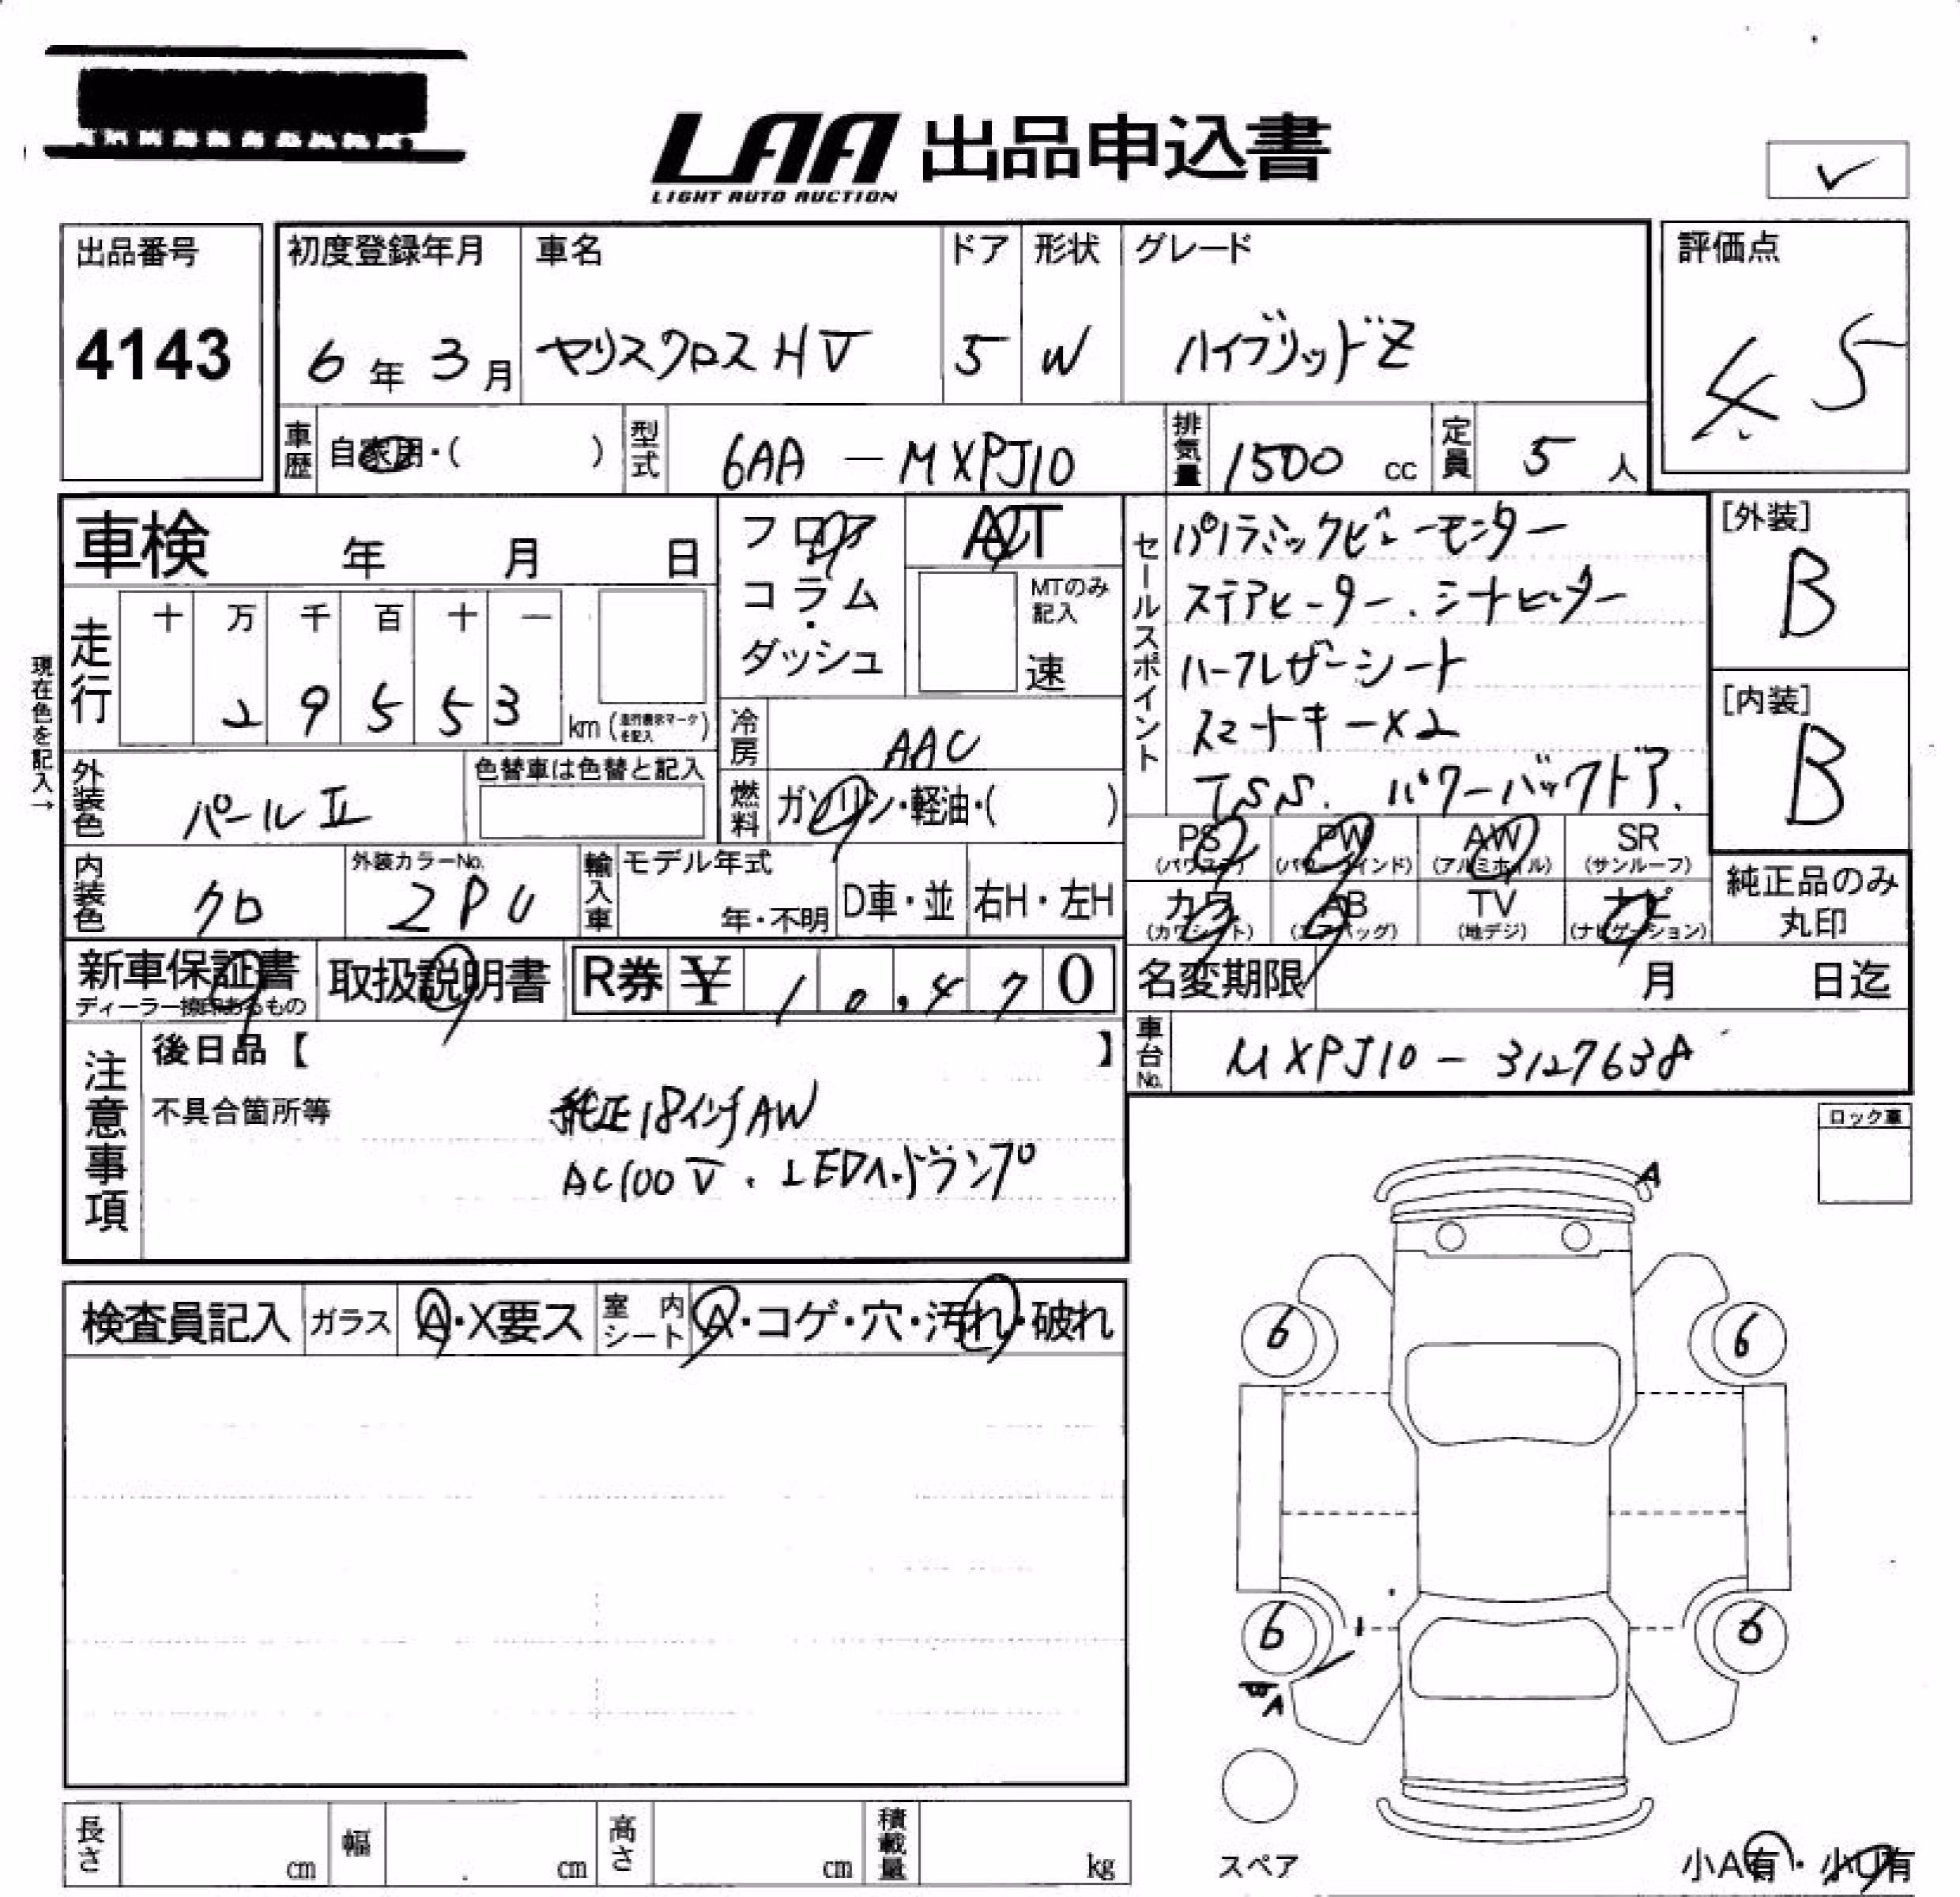 LAA 出品申込書
LIGHT AUTO AUCTION
✓
出品番号
4143
初度登録年月
6年3月
車名
ヤリスクロス HV
ドア
5
形状
W
グレード
ハイブリッドZ
評価点
4.5
車歴
自家用・( )
型式
6AA - MXPJ10
排気量
1500 cc
定員
5 人
車検 年 月 日
フロア
コラム
ダッシュ
AT
MTのみ
記入
速
セールスポイント
パノラミックビューモニター
ステアヒーター、シートヒーター
ハーフレザーシート
スマートキー×2
TSS. パワーバックドア.
[外装]
B
[内装]
B
現在色を記入→
走行
十 万 千 百 十 一
2 9 5 5 3
km (走行表示マークを記入)
冷房
AAC
外装色
パールII
色替車は色替と記入
燃料
ガソリン・軽油・( )
PS
(パワステ)
PW
(パワーウインド)
AW
(アルミホイル)
SR
(サンルーフ)
カワ
(カワシート)
AB
(エアバッグ)
TV
(地デジ)
ナビ
(ナビゲーション)
純正品のみ
丸印
内装色
クロ
外装カラーNo.
2PU
輸入車
モデル年式
年・不明
D車・並
右H・左H
新車保証書
ディーラー捺印あるもの
取扱説明書
R券 ¥ 10,470
名変期限 月 日迄
車台No.
MXPJ10 - 3127638
注意事項
後日品【 】
不具合箇所等
純正18インチAW
AC100V、LEDヘッドランプ
ロック車
A
検査員記入
ガラス
A・X要ス
室内シート
A・コゲ・穴・汚れ・破れ
6
6
6
6
A
スペア
長さ
cm
幅
cm
高さ
cm
積載量
kg
小A有・小U有